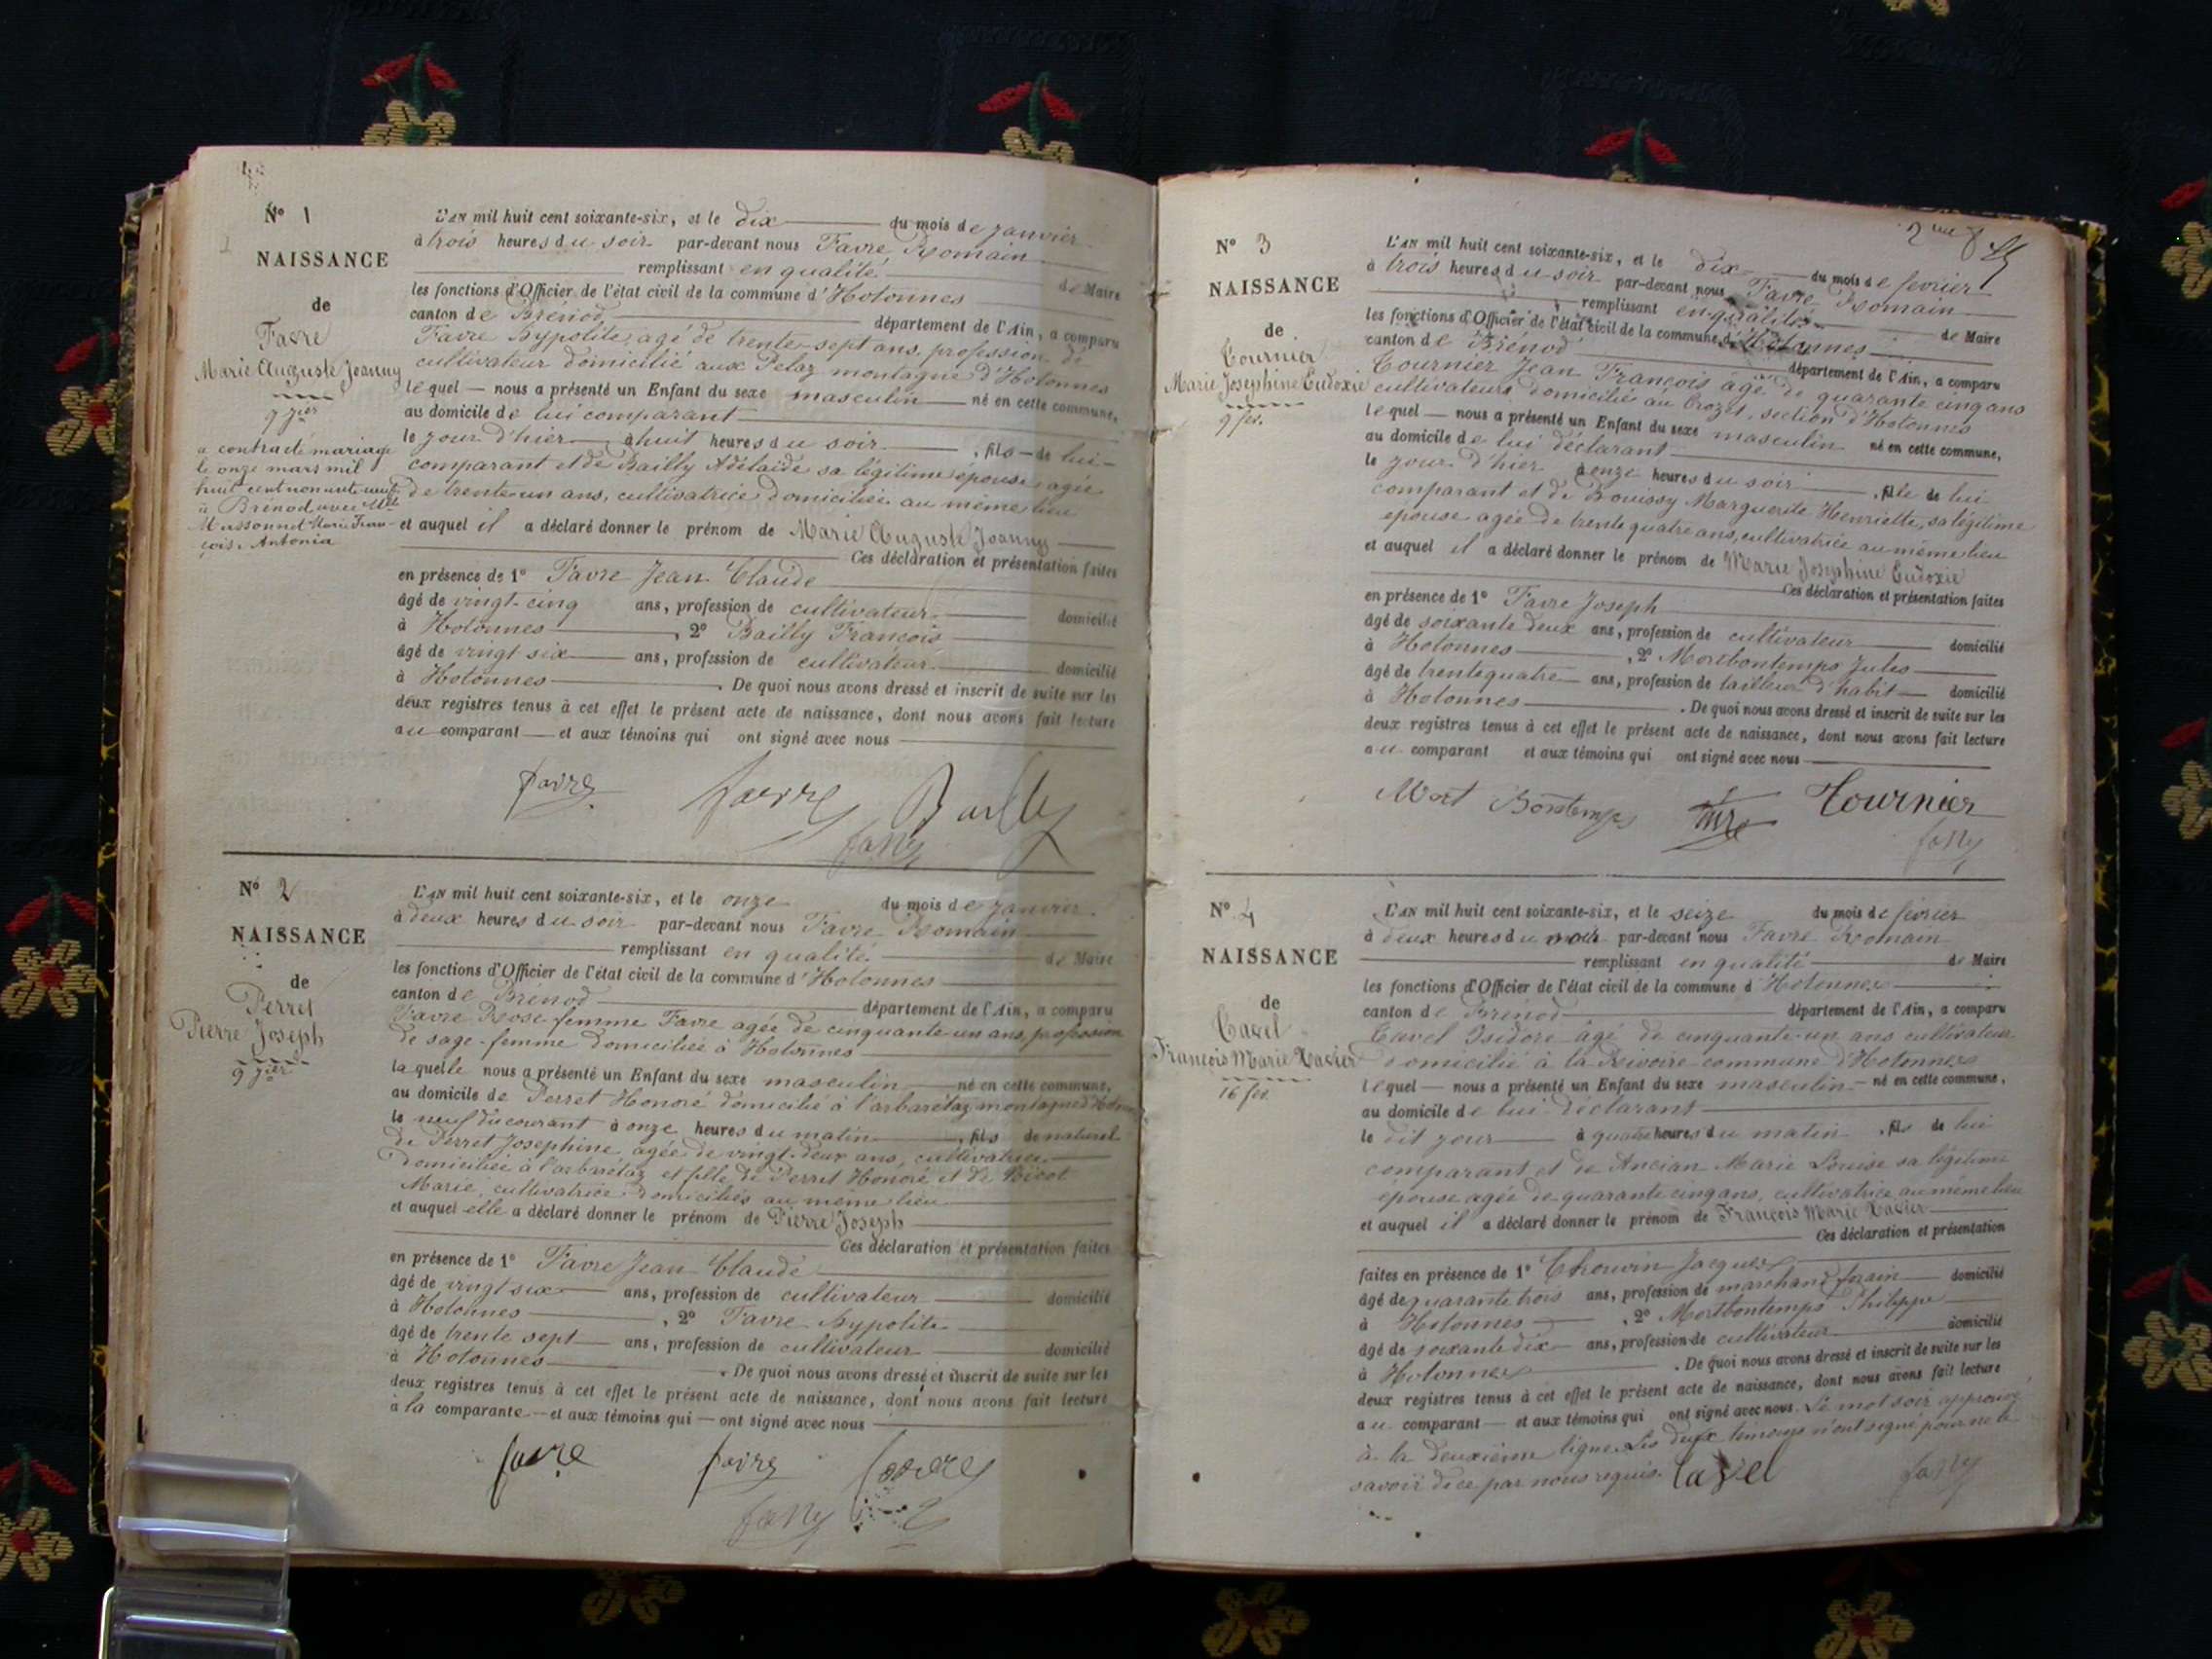 N° 1
NAISSANCE
de
Favre
Marie Auguste Joanny
9 Jer
a contracté mariage
le onze mars mil
huit cent nonante neuf
à Brénod avec Mlle
Massonnet Marie Fran-
çoise Antonia
L'AN mil huit cent soixante-six, et le dix du mois de janvier
à trois heures du soir par-devant nous Favre Romain
remplissant en qualité de Maire
les fonctions d'Officier de l'état civil de la commune d'Hotonnes
canton de Brénod département de l'Ain, a comparu
Favre hypolite, agé de trente-sept ans, profession de
cultivateur domicilié aux Pelaz montagne d'Hotonnes
lequel nous a présenté un Enfant du sexe masculin né en cette commune,
au domicile de lui comparant
le jour d'hier à huit heures du soir, fils de lui
comparant et de Bailly Adélaïde sa légitime épouse, agée
de trente-un ans, cultivatrice domiciliée au même lieu
et auquel il a déclaré donner le prénom de Marie Auguste Joanny
Ces déclaration et présentation faites
en présence de 1° Favre Jean Claude
âgé de vingt-cinq ans, profession de cultivateur domicilié
à Hotonnes, 2° Bailly François
âgé de vingt six ans, profession de cultivateur domicilié
à Hotonnes. De quoi nous avons dressé et inscrit de suite sur les
deux registres tenus à cet effet le présent acte de naissance, dont nous avons fait lecture
au comparant et aux témoins qui ont signé avec nous
favre favre Bailly
N° 2
NAISSANCE
de
Perret
Pierre Joseph
9 Jer
L'AN mil huit cent soixante-six, et le onze du mois de janvier
à deux heures du soir par-devant nous Favre Romain
remplissant en qualité de Maire
les fonctions d'Officier de l'état civil de la commune d'Hotonnes
canton de Brénod département de l'Ain, a comparu
Favre Rose femme Favre agée de cinquante-un ans, profession
de sage-femme domiciliée à Hotonnes
laquelle nous a présenté un Enfant du sexe masculin né en cette commune,
au domicile de Perret Honoré domicilié à l'arbarétaz montagne d'Hotonnes
le neuf du courant à onze heures du matin, fils de naturel
de Perret Josephine, agée de vingt-deux ans, cultivatrice
domiciliée à l'arbarétaz, et fille de Perret Honoré et de Bicot
Marie, cultivatrice, domiciliés au même lieu
et auquel elle a déclaré donner le prénom de Pierre Joseph
Ces déclaration et présentation faites
en présence de 1° Favre Jean Claude
âgé de vingt six ans, profession de cultivateur domicilié
à Hotonnes, 2° Favre hypolite
âgé de trente sept ans, profession de cultivateur domicilié
à Hotonnes. De quoi nous avons dressé et inscrit de suite sur les
deux registres tenus à cet effet le présent acte de naissance, dont nous avons fait lecture
à la comparante et aux témoins qui ont signé avec nous
favre favre favre
N° 3
NAISSANCE
de
Tournier
Marie Josephine Eudoxie
9 fer.
L'AN mil huit cent soixante-six, et le dix du mois de fevrier
à trois heures du soir par-devant nous Favre Romain
remplissant en qualité de Maire
les fonctions d'Officier de l'état civil de la commune d'Hotonnes
canton de Brénod département de l'Ain, a comparu
Tournier Jean François âgé de quarante cinq ans
cultivateur domicilié au Crozet, section d'Hotonnes
lequel nous a présenté un Enfant du sexe masculin né en cette commune,
au domicile de lui déclarant
le jour d'hier à onze heures du soir, file de lui
comparant et de Bouissy Marguerite Henriette, sa légitime
épouse agée de trente quatre ans, cultivatrice au même lieu
et auquel il a déclaré donner le prénom de Marie Josephine Eudoxie
Ces déclaration et présentation faites
en présence de 1° Favre Joseph
âgé de soixante deux ans, profession de cultivateur domicilié
à Hotonnes, 2° Mortbontemps Jules
âgé de trente quatre ans, profession de tailleur d'habit domicilié
à Hotonnes. De quoi nous avons dressé et inscrit de suite sur les
deux registres tenus à cet effet le présent acte de naissance, dont nous avons fait lecture
au comparant et aux témoins qui ont signé avec nous
Mort Bontemps favre Tournier
N° 4
NAISSANCE
de
Cavel
François Marie Xavier
16 fer.
L'AN mil huit cent soixante-six, et le seize du mois de février
à deux heures du soir par-devant nous Favre Romain
remplissant en qualité de Maire
les fonctions d'Officier de l'état civil de la commune d'Hotonnes
canton de Brénod département de l'Ain, a comparu
Cavel Isidore âgé de cinquante-un ans cultivateur
domicilié à la Rivoire commune d'Hotonnes
lequel nous a présenté un Enfant du sexe masculin né en cette commune,
au domicile de lui déclarant
le dit jour à quatre heures du matin, fils de lui
comparant et de Ancian Marie Louise sa légitime
épouse agée de quarante cinq ans, cultivatrice au même lieu
et auquel il a déclaré donner le prénom de François Marie Xavier
Ces déclaration et présentation
faites en présence de 1° Chouvin Jacques
âgé de quarante trois ans, profession de marchand forain domicilié
à Hotonnes, 2° Mortbontemps Philippe
âgé de soixante dix ans, profession de cultivateur domicilié
à Hotonnes. De quoi nous avons dressé et inscrit de suite sur les
deux registres tenus à cet effet le présent acte de naissance, dont nous avons fait lecture
au comparant et aux témoins qui ont signé avec nous. Le mot soir approuvé
à la deuxième ligne. Les deux témoins n'ont signé pour ne le
savoir de ce par nous requis. Cavel